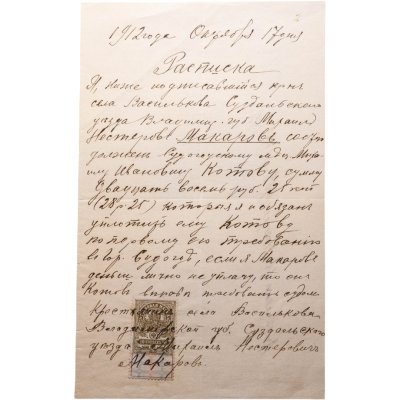 1912 года Октября 17 дня
Расписка
Я, ниже подписавшийся крн
села Василькова Суздальского
уезда Владимир. губ Михаил
Нестеровъ Макаровъ состою
должен Судогодскому мѣщ.
Ивановичу Котову, сумму
Двадцать восемь руб. 25 коп
(28р 25) которыя я обязан
уплотить ему Котову
по первому его требованию
в гор. Судогд, если я Макаровъ
деньги лично не уплачу, то он
Котовъ вправѣ требовать судом
Крестьянин села Василькова
Владимирской губ. Суздальского
уезда Михаил Нестеровичъ
Макаровъ